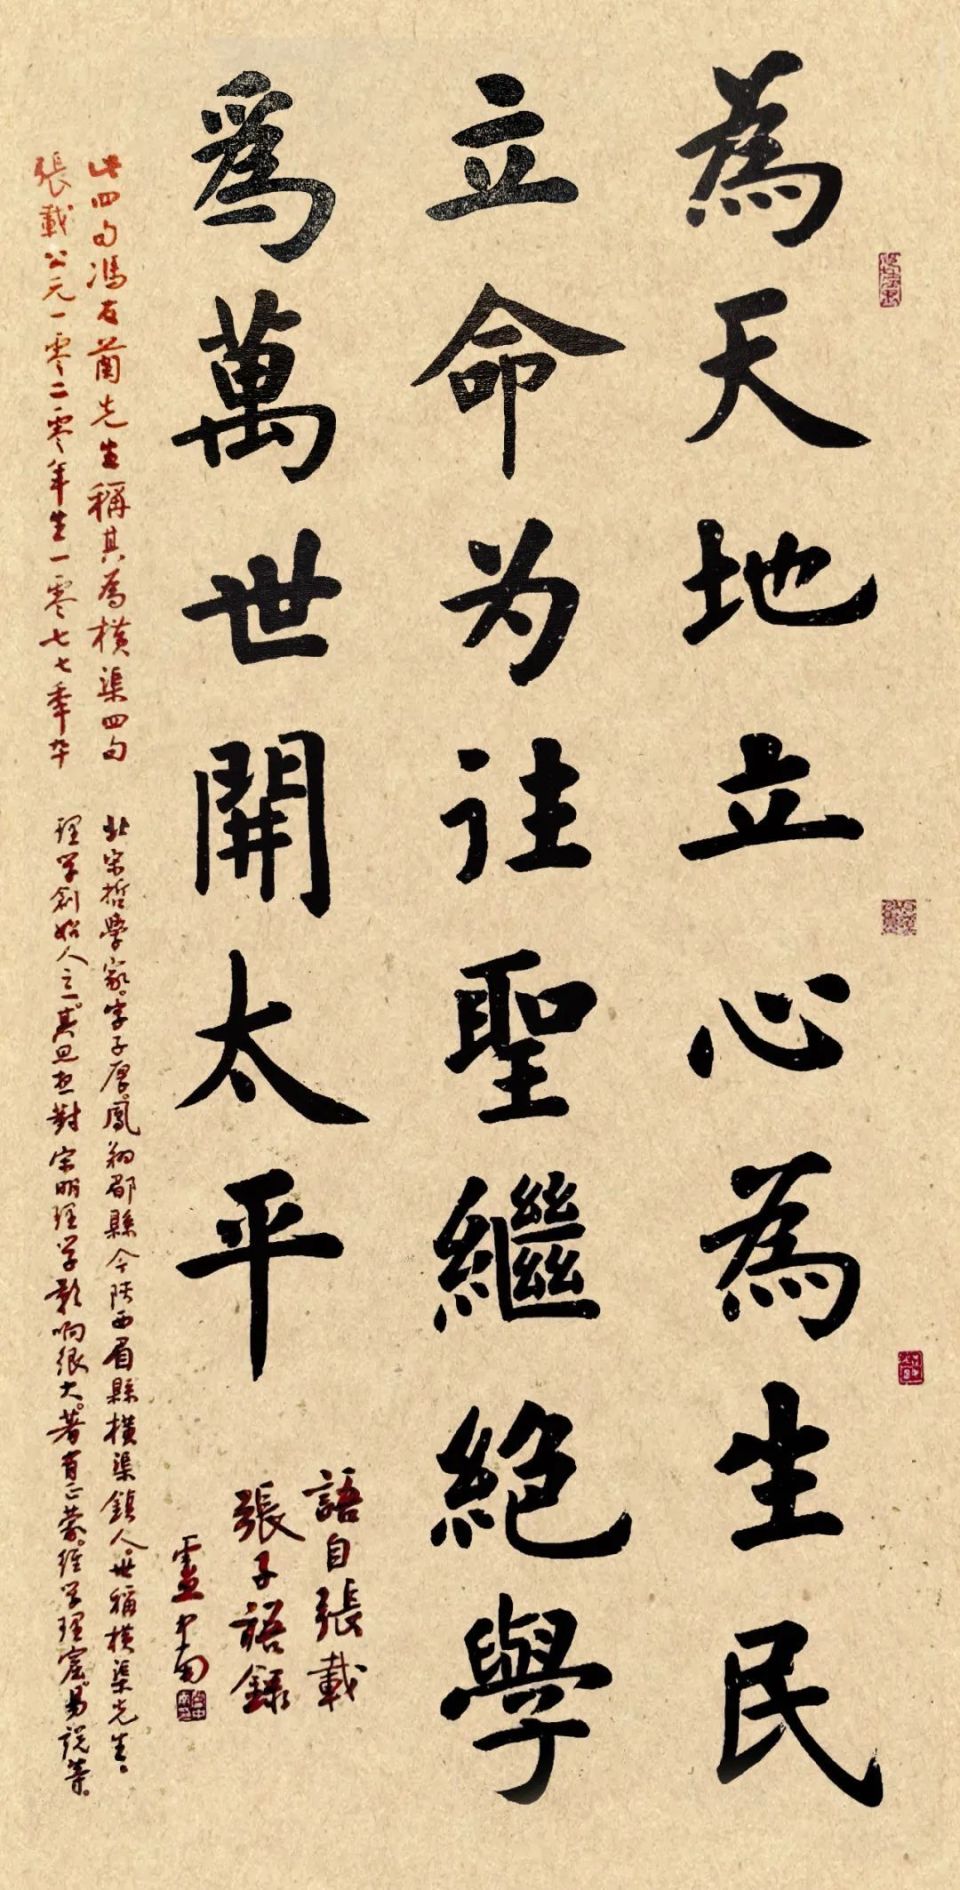 為天地立心為生民
立命为往聖繼絕學
爲萬世開太平
語自張載
張子語錄
此四句馮友蘭先生稱其為橫渠四句
張載公元一零二零年生一零七七年卒
北宋哲學家。字子厚。鳳翔郿縣今陝西眉縣橫渠鎮人。世稱橫渠先生。
理学創始人之一。其思想對宋明理学影响很大。著有正蒙。经学理窟。易説等。